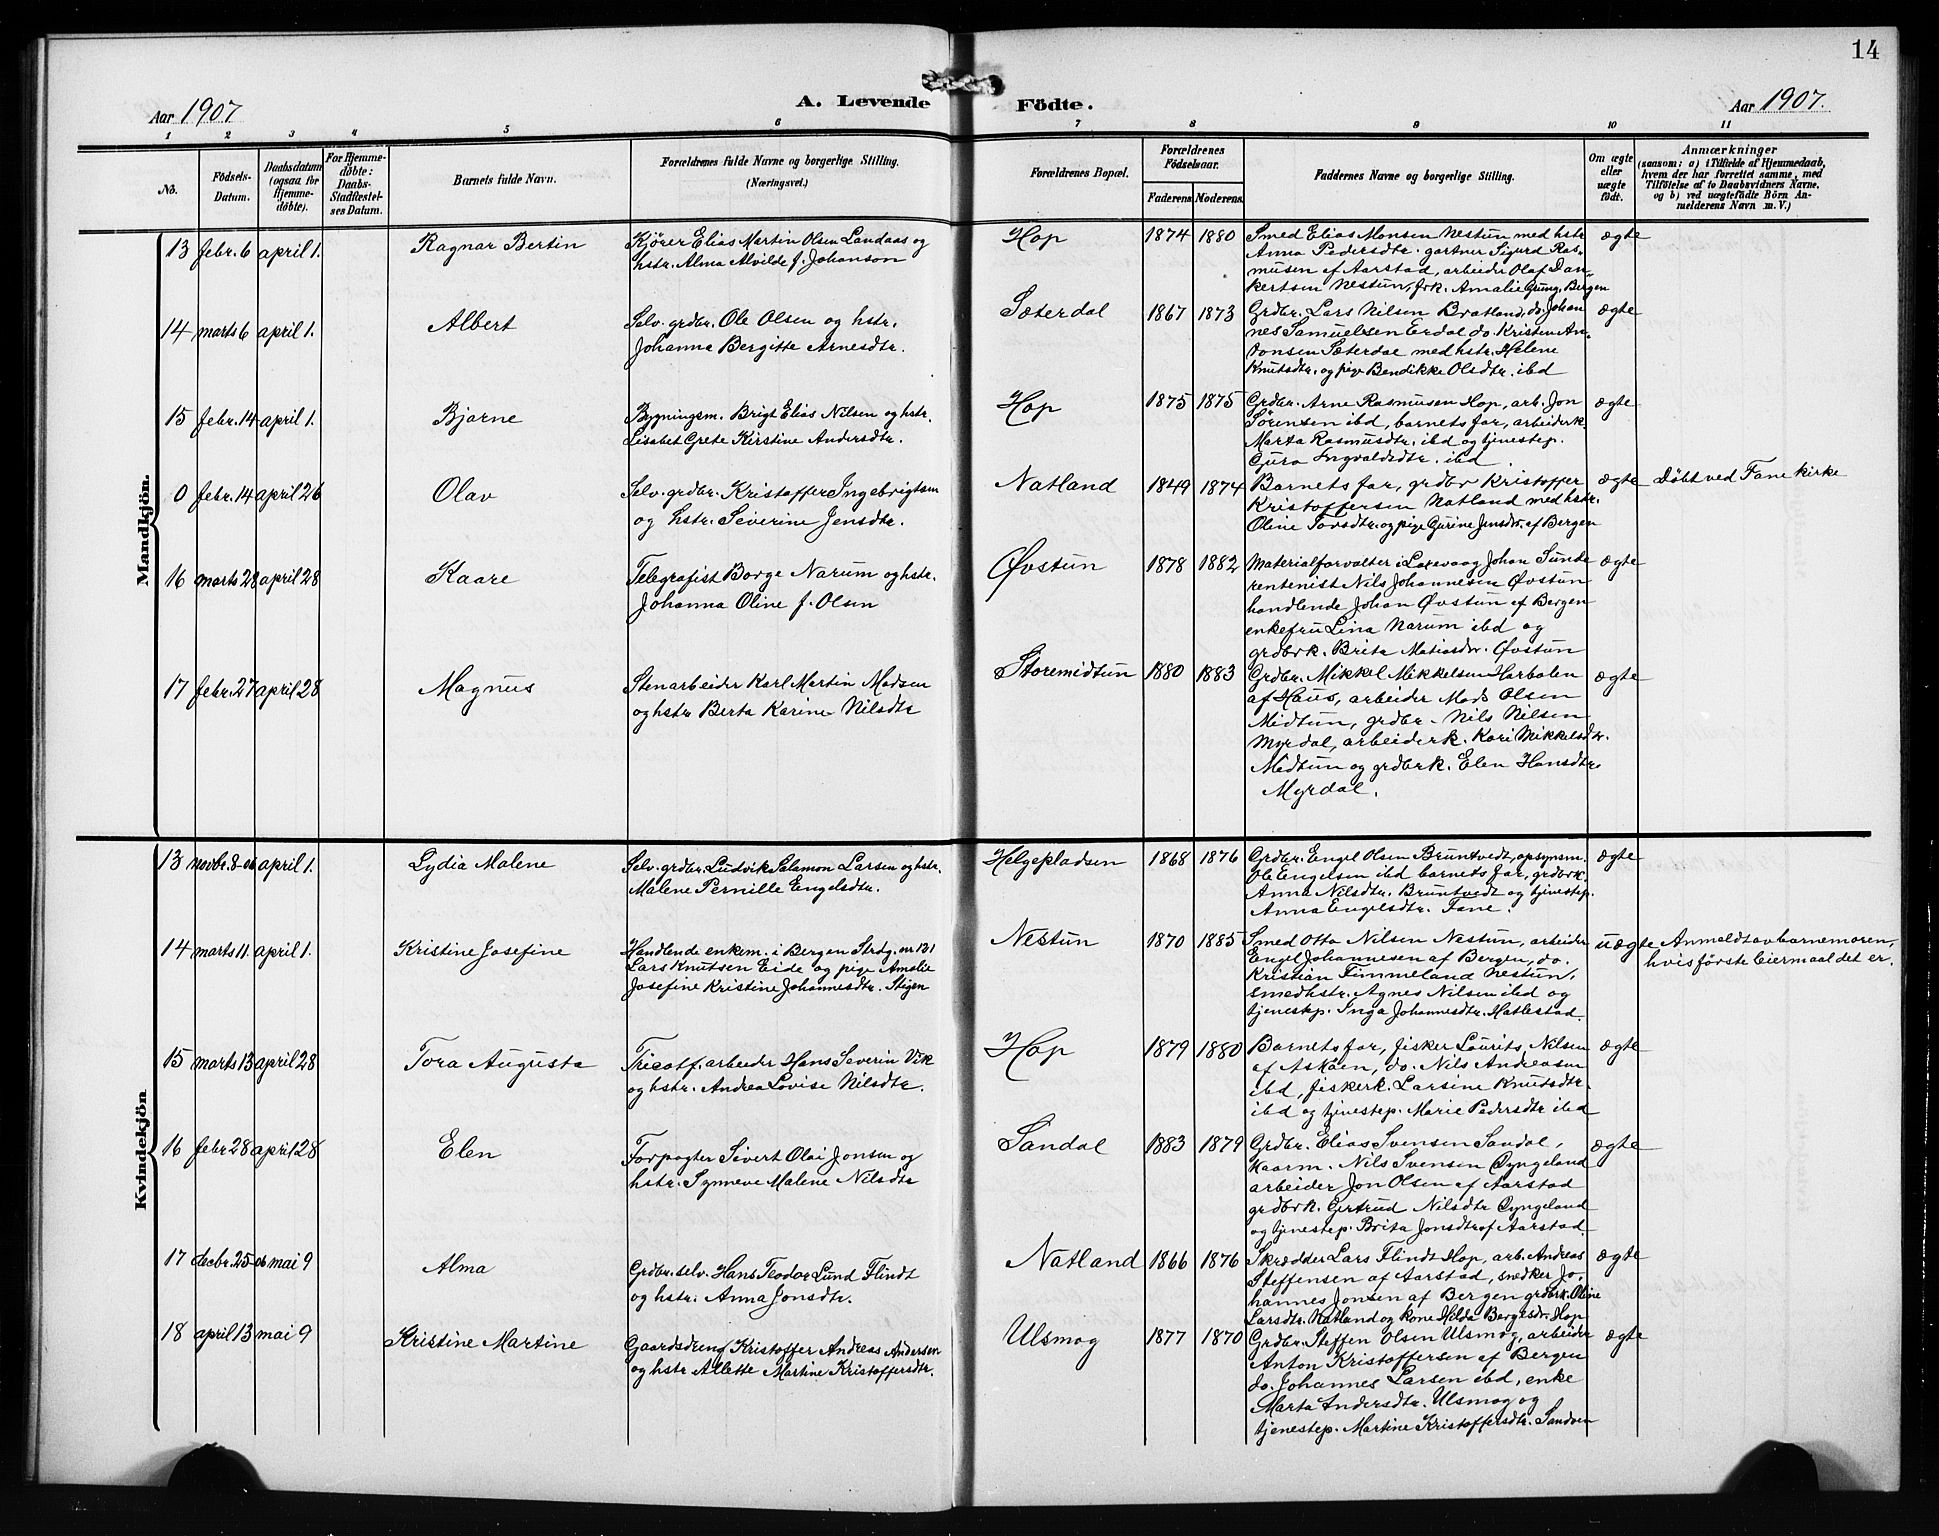 14
Aar 1907
A. Levende
Födte.
Aar 1907.
1 2 3 4 5 6 7 8 9 10 11
No.
Födsels-
Datum.
Daabsdatum
(ogsaa for
Hjemme-
döbte).
For Hjemme-
döbte:
Daabs-
Stadfæstel-
ses Datum.
Barnets fulde Navn.
Forældrenes fulde Navne og borgerlige Stilling.
(Næringsvei.)
Forældrenes Bopæl.
Forældrenes
Födselsaar.
Faderens
Moderens
Faddernes Navne og borgerlige Stilling.
Om ægte
eller
uægte
födt.
Anmærkninger
(saasom: a) i Tilfælde af Hjemmedaab,
hvem der har forrettet samme, med
Tilföielse af to Daabsvidners Navne,
og b) ved uægtefödte Börn An-
melderens Navn m. V.)
Mandkjön.
13 febr. 6 april 1. Ragnar Bertin
Kjörer Elias Martin Olsen Landaas og
hstr. Alma Alvilde f. Johanson
Hop 1874 1880
Smed Elias Monsen Nestun med hstr
Anna Pedersdtr. gartner Sigurd Ras-
musen af Aarstad, arbeider Olaf Dan-
kertsen Nestun, frk. Amalie Grung, Bergen
ægte
14 marts 6 april 1. Albert
Selv. grdbr. Ole Olsen og hstr.
Johanna Bergitte Arnesdtr.
Sæterdal 1867 1873
Grdbr. Lars Nilsen Bratland, do. Johan
nes Samuelsen Erdal do. Kristen An-
donsen Sæterdal med hstr. Helene
Knutsdtr. og pige Bendikke Olsdtr. ibd
ægte
15 febr. 14 april 1. Bjarne
Bygningsm. Brigt Elias Nilsen og hstr.
Lisabet Grete Kirstine Andersdtr.
Hop 1875 1875
Grdbr. Arne Rasmusen Hop, arb. Jon
Sörensen ibd, barnets far, arbeiderk
Marta Rasmusdtr. ibd og tjenestep.
Guro Ingvaldsdtr. ibd.
ægte
0 febr. 14 april 26 Olav
Selv. grdbr. Kristoffer Ingebrigtsen
og hstr. Severine Jensdtr.
Natland 1849 1874
Barnets far, grdbr Kristoffer
Kristoffersen Natland med hstr.
Oline Torsdtr. og pige Gurine Jensdtr. af Bergen
ægte
Döbt ved Fane kirke
16 marts 28 april 28 Kaare
Telegrafist Borge Narum og hstr.
Johanna Oline f. Olsen
Øvstun 1878 1882
Materialforvalter i Laxevaag Johan Sunde
rentenist Nils Johannesen Øvstun
handlende Johan Øvstun af Bergen
enkefru Lina Narum ibd og
grdbrk. Brita Matiasdtr. Øvstun
ægte
17 febr. 27 april 28 Magnus
Stenarbeider Karl Martin Madsen
og hstr Berta Karine Nilsdtr
Storemidtun 1880 1883
Grdbr. Mikkel Mikkelsen Harbalen
af Haus, arbeider Mads Olsen
Midtun, grdbr. Nils Nilsen
Myrdal, arbeiderk. Kari Mikkelsdtr.
Midtun og grdbrk. Elen Hansdtr
Myrdal.
ægte
Kvindekjön
13 novbr. 8-06 april 1. Lydia Malene
Selv. grdbr. Ludvik Salamon Larsen og hstr.
Malene Pernille Engelsdtr.
Helgepladsen 1868 1876
Grdbr. Engel Olsen Bruntvedt, opsynsm.
Ole Engelsen ibd barnets far, grdbrk.
Anna Nilsdtr. Bruntvedt og tjenestep.
Anna Engelsdtr. Fane.
ægte
14 marts 11. april 1. Kristine Josefine
Handlende enkem. i Bergen Strdg. nr 131
Lars Knutsen Eide og pige Amalie
Josefine Kristine Johannesdtr. Stigen
Nestun 1870 1885
Smed Otto Nilsen Nestun, arbeider
Engel Johannesen af Bergen, do.
Kristian Timmeland Nestun,
smedhstr. Agnes Nilsen ibd og
tjenestep. Inga Johannesdtr. Hatlestad.
uægte
Anmeldt av barnemoren,
hvis förste leiermaal det er.
15 marts 13 april 28 Tora Augusta
Tricotf. arbeider Hans Severin Vik
og hstr. Andrea Lovise Nilsdtr.
Hop 1879 1880
Barnets far, fisker Laurits Nilsen
af Asköen, do. Nils Andreasen
ibd, fiskerk. Larsine Knutsdtr.
ibd og tjenestep. Marie Pedersdtr ibd
ægte
16 febr 28 april 28 Elen
Forpagter Sivert Olai Jonsen og
hstr. Synneve Malene Nilsdtr
Sandal 1883 1879
Grdbr. Elias Svensen Sandal,
kaarm. Nils Svensen Dyngeland
arbeider Jon Olsen af Aarstad
grdbrk. Gertrud Nilsdtr Dyngeland
og tjenestep. Brita Jonsdtr af Aarstad.
ægte
17 decbr. 25-06 mai 9 Alma
Grdbr. selv. Hans Teodor Lund Flindt
og hstr. Anna Jonsdtr.
Natland 1866 1876
Skrædder Lars Flindt Hop, arb. Andreas
Steffensen af Aarstad, snedker Jo-
hannes Jonsen af Bergen grdbrk. Oline
Larsdtr. Natland og kone Hilda Bergesdtr. Hop
ægte
18 april 13 mai 9 Kristine Martine
Gaardsdreng Kristoffer Andreas Andersen
og hstr Allette Martine Kristoffersdtr.
Ulsmog 1877 1870
Grdbr. Steffen Olsen Ulsmog, arbeider
Anton Kristoffersen af Bergen
do. Johannes Larsen ibd, enke
Marta Andersdtr. Ulsmog og
tjenestep. Martine Kristoffersdtr. Sandven
ægte